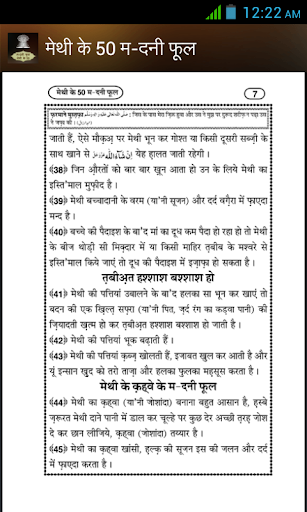 12:22 AM
मेथी के 50 म-दनी फूल
मेथी के 50 म-दनी फूल 7
फ़रमाने मुस्तफ़ा صلى الله تعالى عليه واله وسلم : जिस के पास मेरा ज़िक्र हुवा और उस ने मुझ पर दुरूद शरीफ़ न पढ़ा उस
ने जफ़ा की।
जाती हैं, ऐसे मौक़अ़ पर मेथी भून कर गोश्त या किसी दूसरी सब्ज़ी के
साथ खाने से اِنْ شَآءَاللہ عَزَّوَجَلَّ येह हालत जाती रहेगी।
﴾38﴿ जिन औ़रतों को बार बार ख़ून आता हो उन के लिये मेथी का
इस्ति'माल मुफ़ीद है।
﴾39﴿ मेथी बच्चादानी के वरम (या'नी सूजन) और दर्द वग़ैरा में फ़ाएदा
मन्द है।
﴾40﴿ बच्चे की पैदाइश के बा'द मां का दूध कम पैदा हो रहा हो तो मेथी
के बीज थोड़ी सी मिक़्दार में या किसी माहिर त़बीब के मश्वरे से
इस्ति'माल किये जाएं तो दूध की पैदाइश में इज़ाफ़ा हो सकता है।
त़बीअ़त हश्शाश बश्शाश हो
﴾41﴿ मेथी की पत्तियां उबालने के बा'द हलका सा भून कर खाएं तो
बदन की एक ख़िल्त़ सफ़्रा (या'नी पित, ज़र्द रंग का कड़वा पानी) की
ज़ियादती ख़त्म हो कर त़बीअ़त हश्शाश बश्शाश हो जाती है।
﴾42﴿ मेथी की पत्तियां भूक बढ़ाती हैं।
﴾43﴿ मेथी की पत्तियां क़ब्ज़ खोलती हैं, इजाबत खुल कर आती है और
यूं इन्सान ख़ुद को तरो ताज़ा और हलका फुलका मह़सूस करता है।
मेथी के क़हवे के म-दनी फूल
﴾44﴿ मेथी का क़हवा (या'नी जोशांदा) बनाना बहुत आसान है, ह़स्बे
ज़रूरत मेथी दाने पानी में डाल कर चूल्हे पर कुछ देर अच्छी त़रह़ जोश
दे कर छान लीजिये, क़हवा (जोशांदा) तय्यार है।
﴾45﴿ मेथी का क़हवा खांसी, ह़ल्क़ की सूजन इस की जलन और दर्द
में फ़ाएदा करता है।